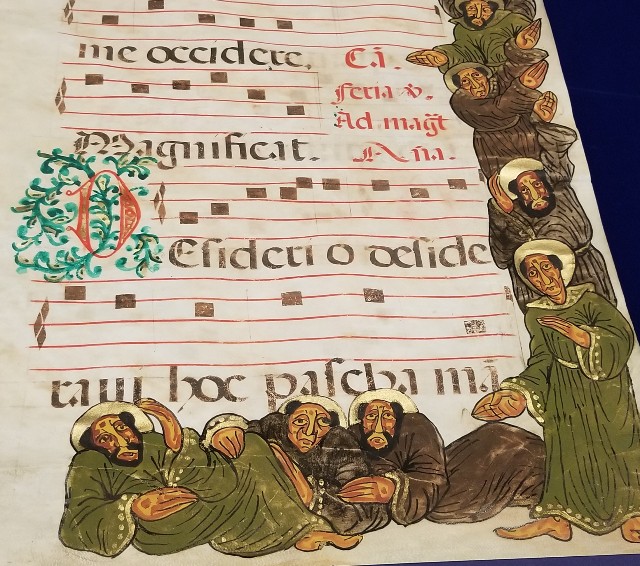 me occidere. Cā.
feria v.
Ad mag̃t
Magnificat. Aña.
DEsiderio deside
raui hoc pascha mā